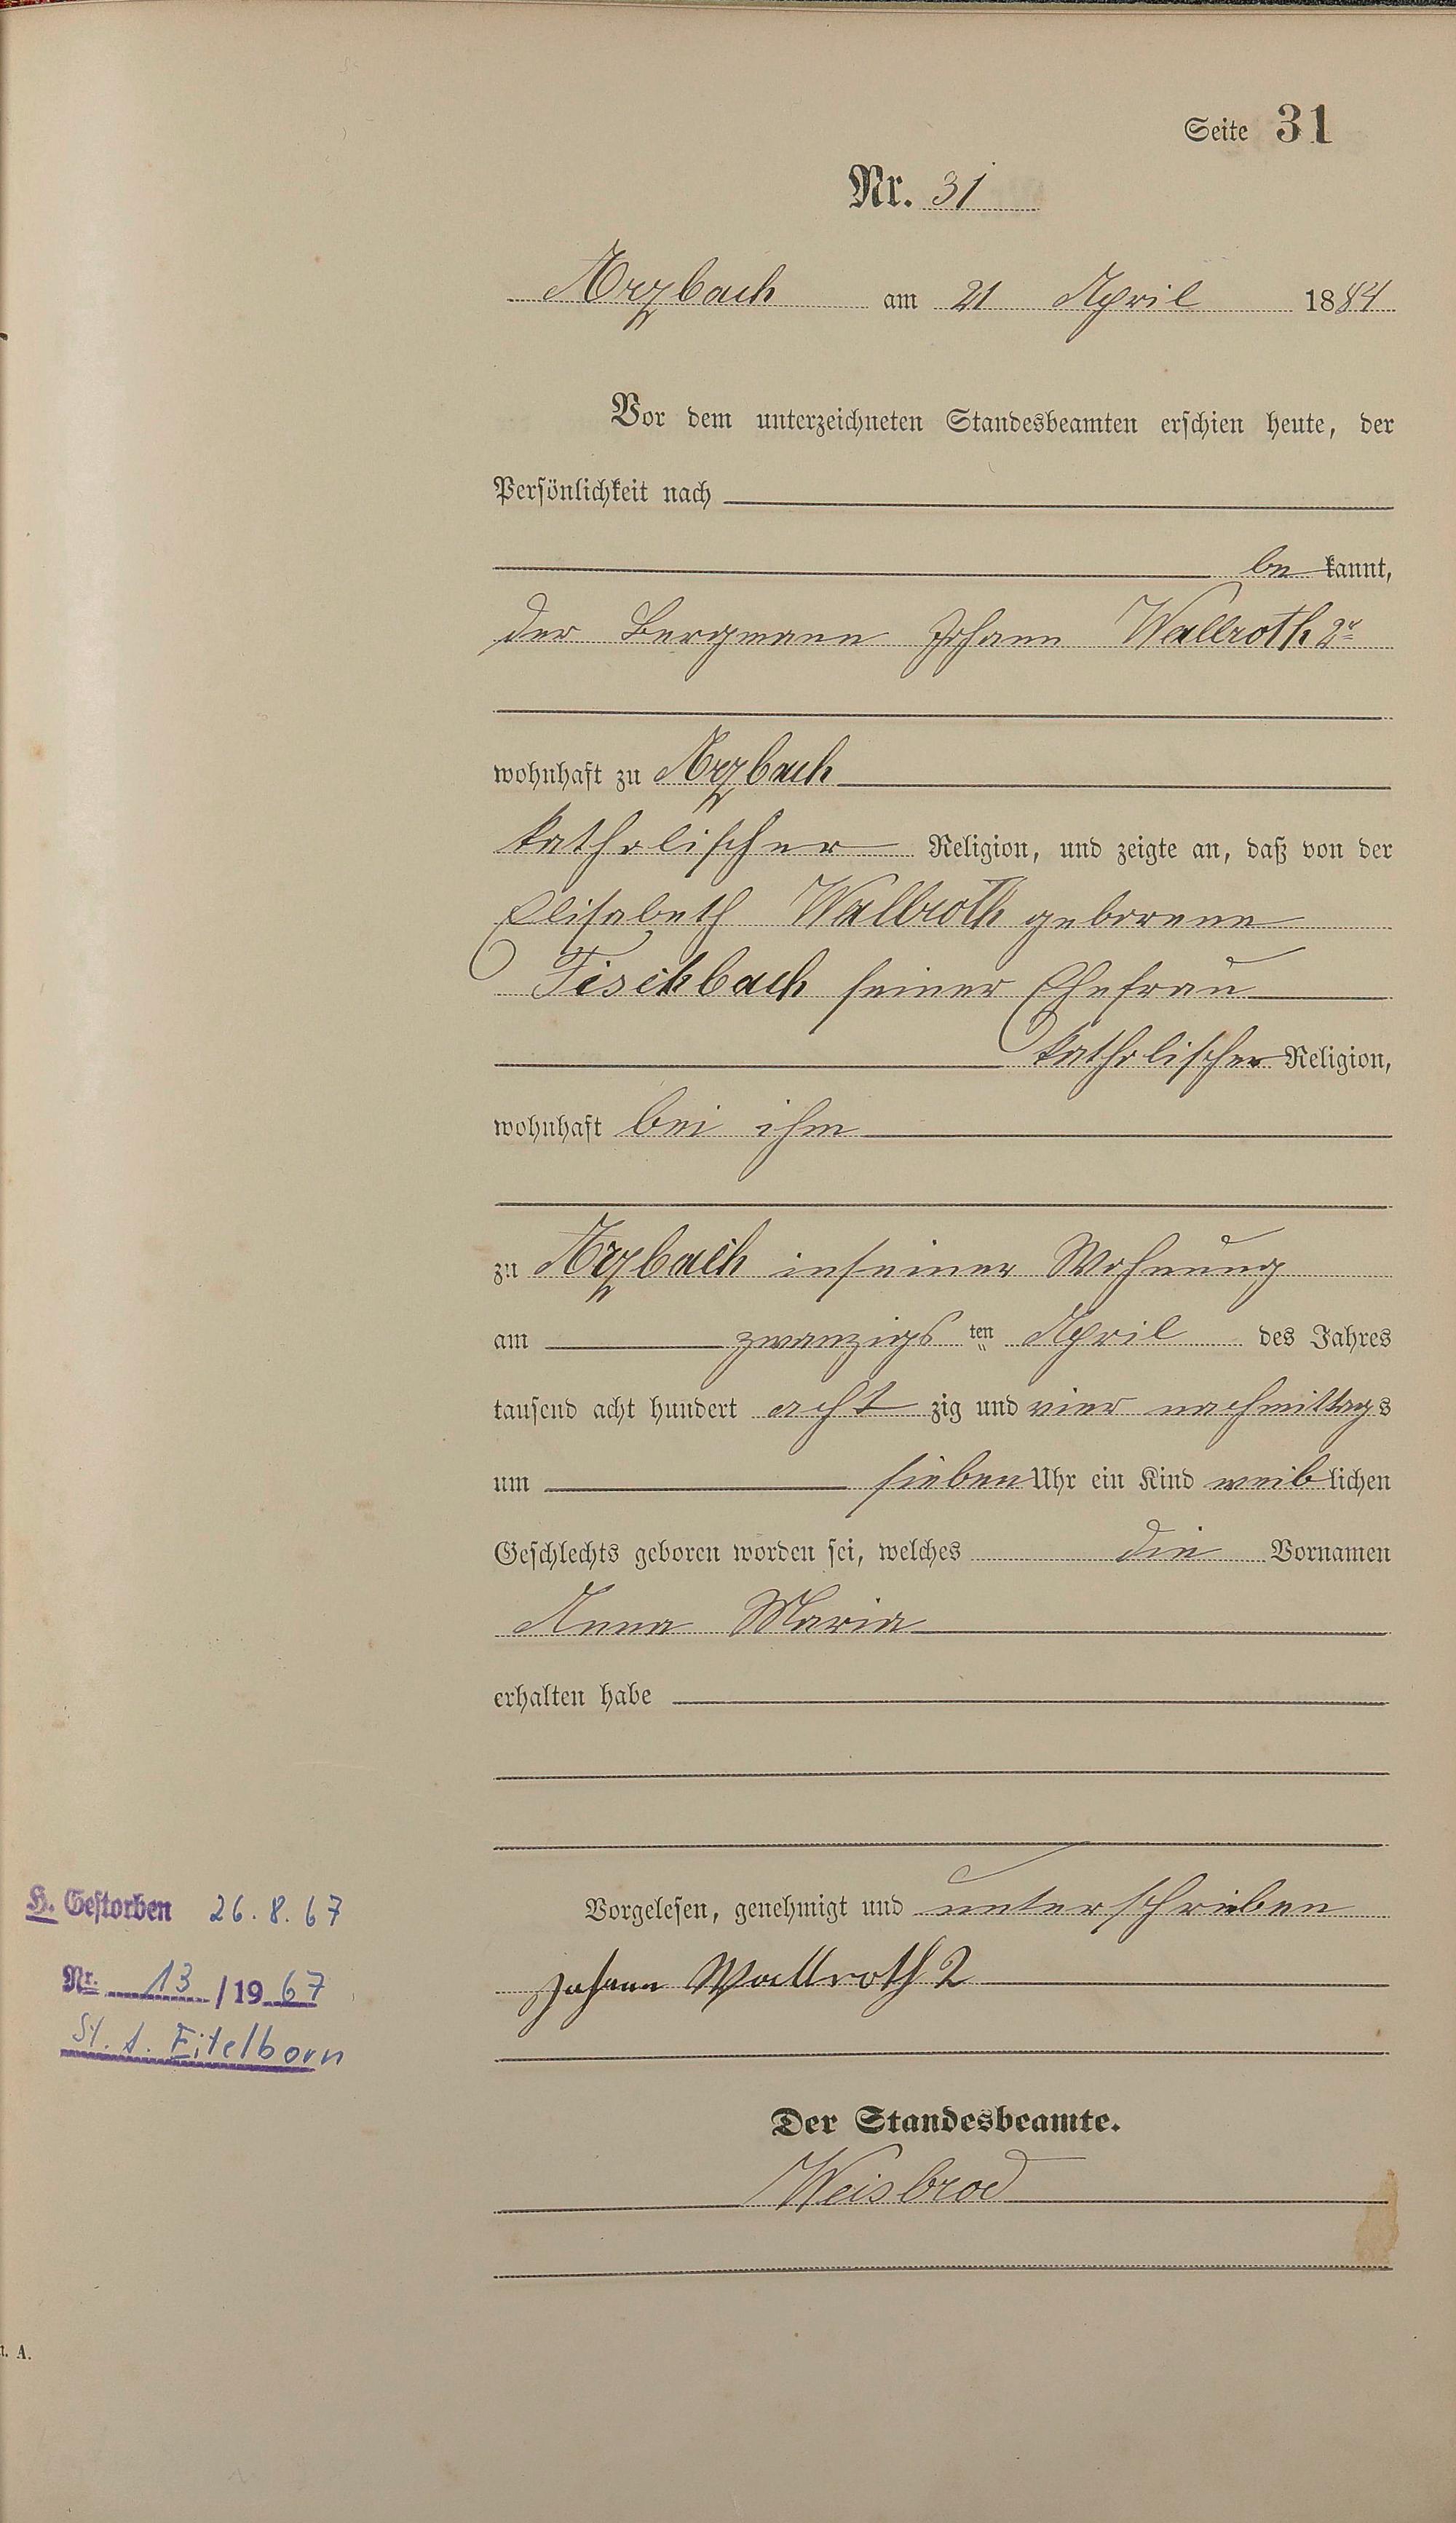 Seite 31
Nr. 31
Arzbach am 21 April 1884
Vor dem unterzeichneten Standesbeamten erschien heute, der
Persönlichkeit nach
be kannt,
der Bergmann Johann Wallroth 2r
wohnhaft zu Arzbach
katholischer Religion, und zeigte an, daß von der
Elisabeth Wallroth geborene
Fischbach seiner Ehefrau
katholischer Religion,
wohnhaft bei ihm
zu Arzbach in seiner Wohnung
am zwanzigs ten April des Jahres
tausend acht hundert acht zig und vier nachmittags
um sieben Uhr ein Kind weiblichen
Geschlechts geboren worden sei, welches die Vornamen
Anna Maria
erhalten habe
Vorgelesen, genehmigt und unterschrieben
Johann Wallroth 2
Der Standesbeamte.
Weisbrod
H. Gestorben 26.8.67
Nr. 13/1967
St. A. Eitelborn
A.